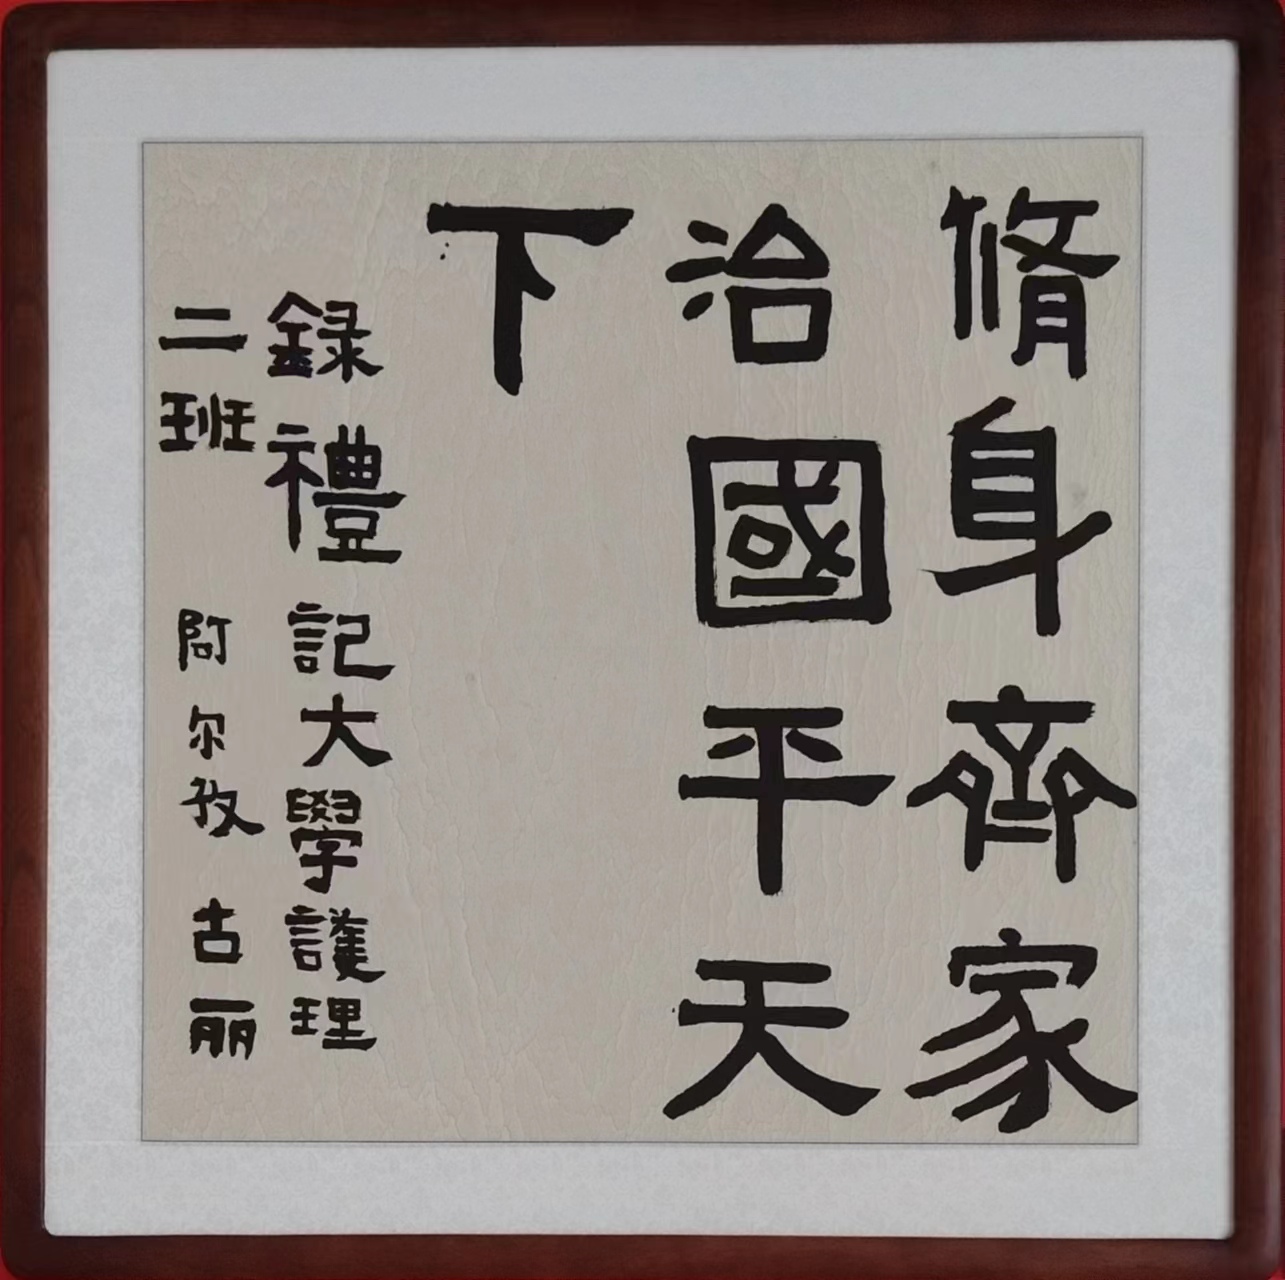 脩身齊家
治國平天
下
錄禮記大學護理
二班 阿尔孜古丽